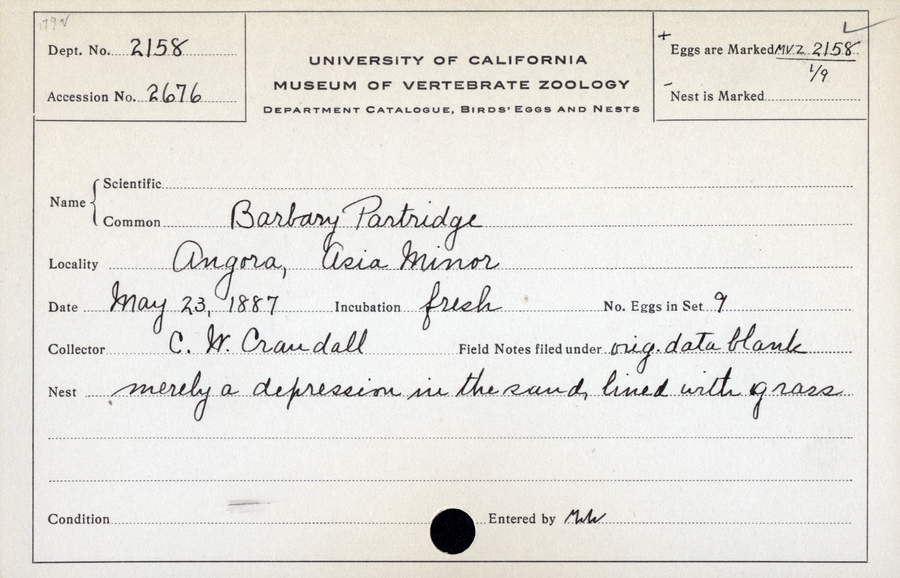 Dept. No. 2158
Accession No. 2676
UNIVERSITY OF CALIFORNIA
MUSEUM OF VERTEBRATE ZOOLOGY
DEPARTMENT CATALOGUE, BIRDS' EGGS AND NESTS
+ Eggs are Marked MVZ 2158
1/9
- Nest is Marked
Name
Scientific
Common Barbary Partridge
Locality Angora, Asia Minor
Date May 23, 1887 Incubation fresh No. Eggs in Set 9
Collector C. W. Crandall Field Notes filed under orig. data blank
Nest merely a depression in the sand, lined with grass
Condition Entered by